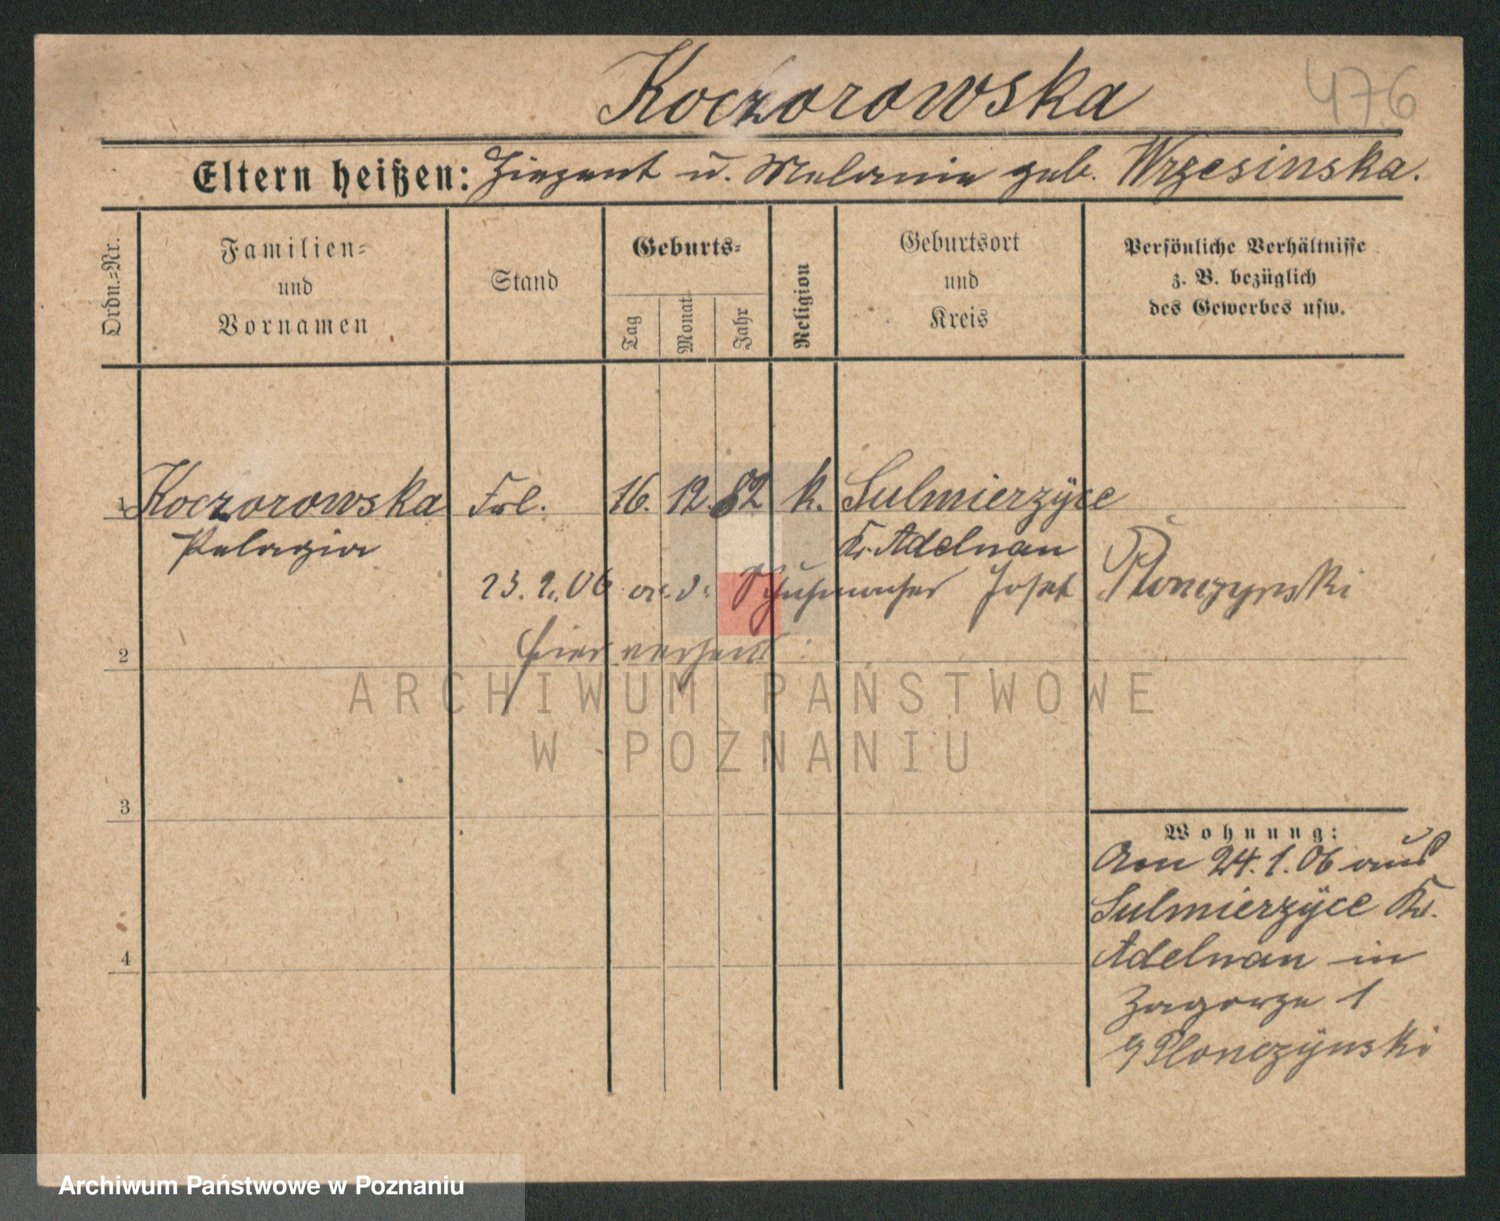 Koczorowska
476
Eltern heißen: Ziegent u. Melanie geb. Wrzesinska.
Ordn.=Nr.
Familien=
und
Vornamen
Stand
Geburts=
Tag
Monat
Jahr
Religion
Geburtsort
und
Kreis
Persönliche Verhältnisse
z. B. bezüglich
des Gewerbes usw.
1 Koczorowska Frl. 16. 12. 82 k. Sulmierzÿce
Pelagia Kr. Adelnau
23. 2. 06 a. d. Schuhmacher Josef Plonczynski
hier verheir.
2
ARCHIWUM PAŃSTWOWE
W POZNANIU
3
Wohnung:
Am 24. 1. 06 aus
Sulmierzÿce Kr.
Adelnau in
4
Zagorze 1
Plonczÿnski
Archiwum Państwowe w Poznaniu